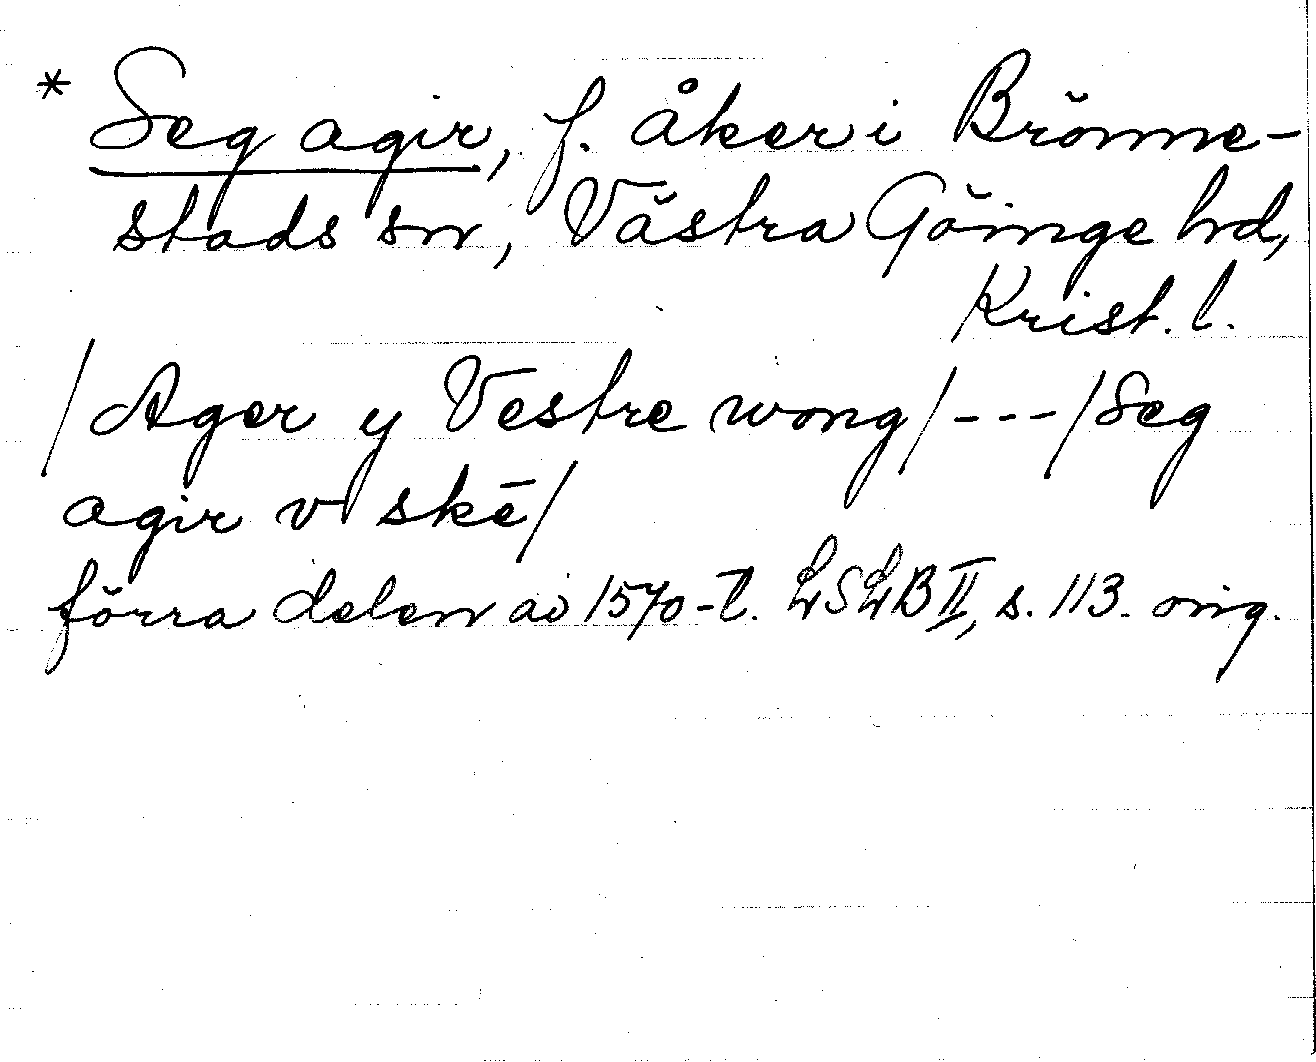 * Seg agir, f. åker i Brönne-
stads sn, Västra Göinge hrd,
Krist. l.
/Ager y Vestre wong/---/Seg
agir v skē/
förra delen av 1570-t. LSLB II, s. 113. orig.